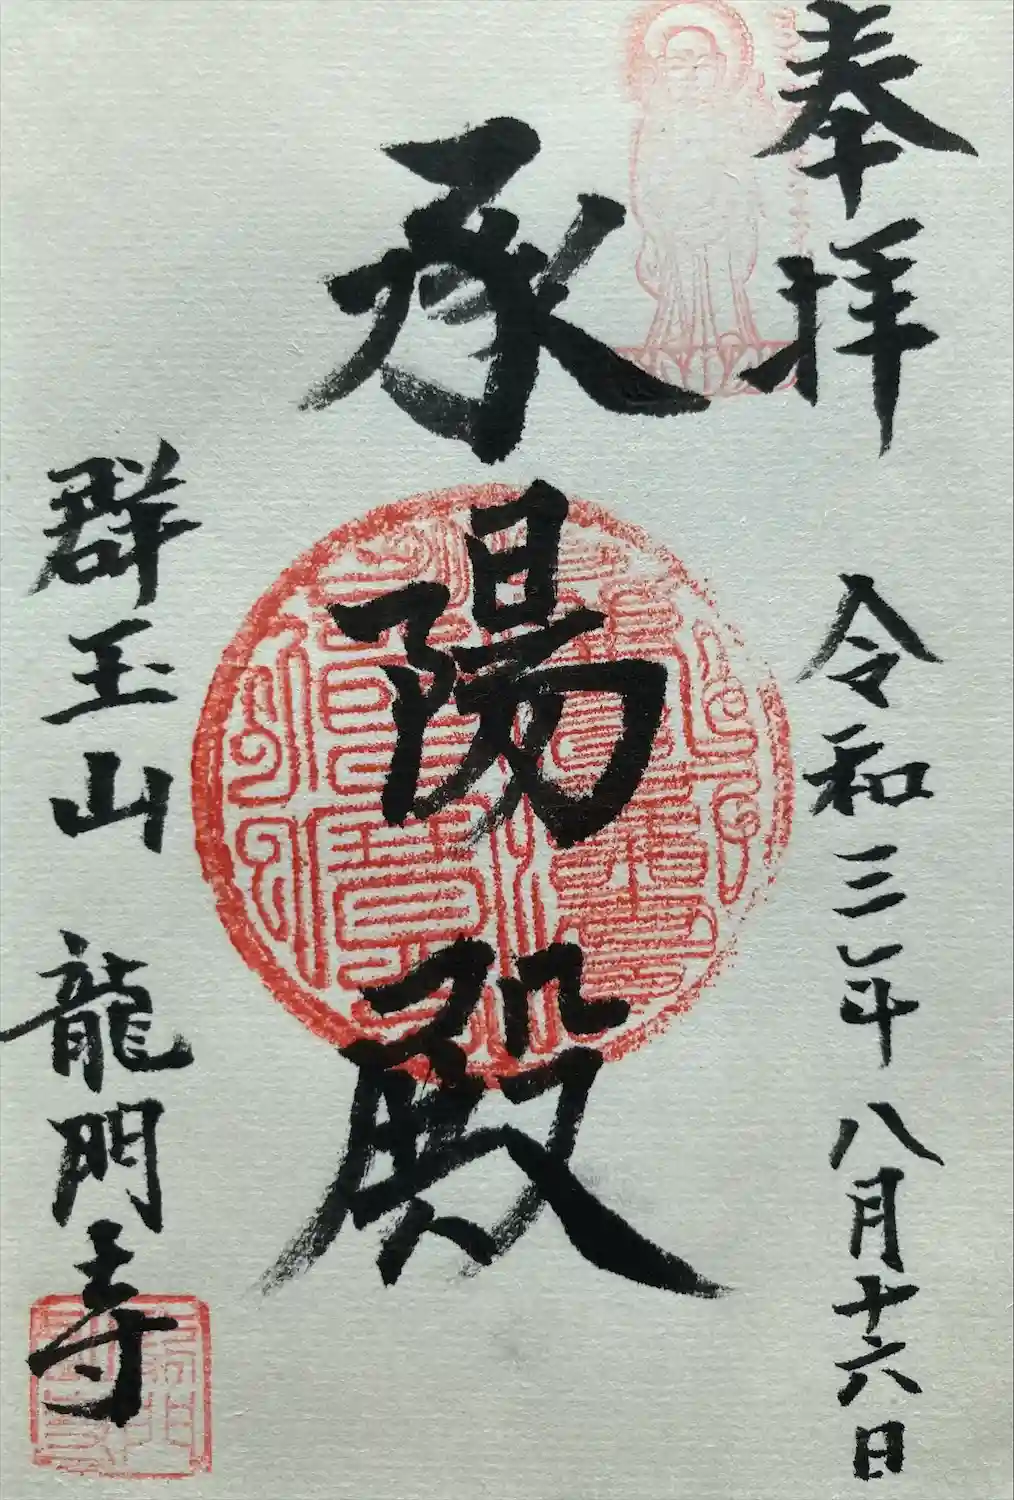 奉拝
令和三年
八月十六日
承陽殿
群玉山
龍門寺